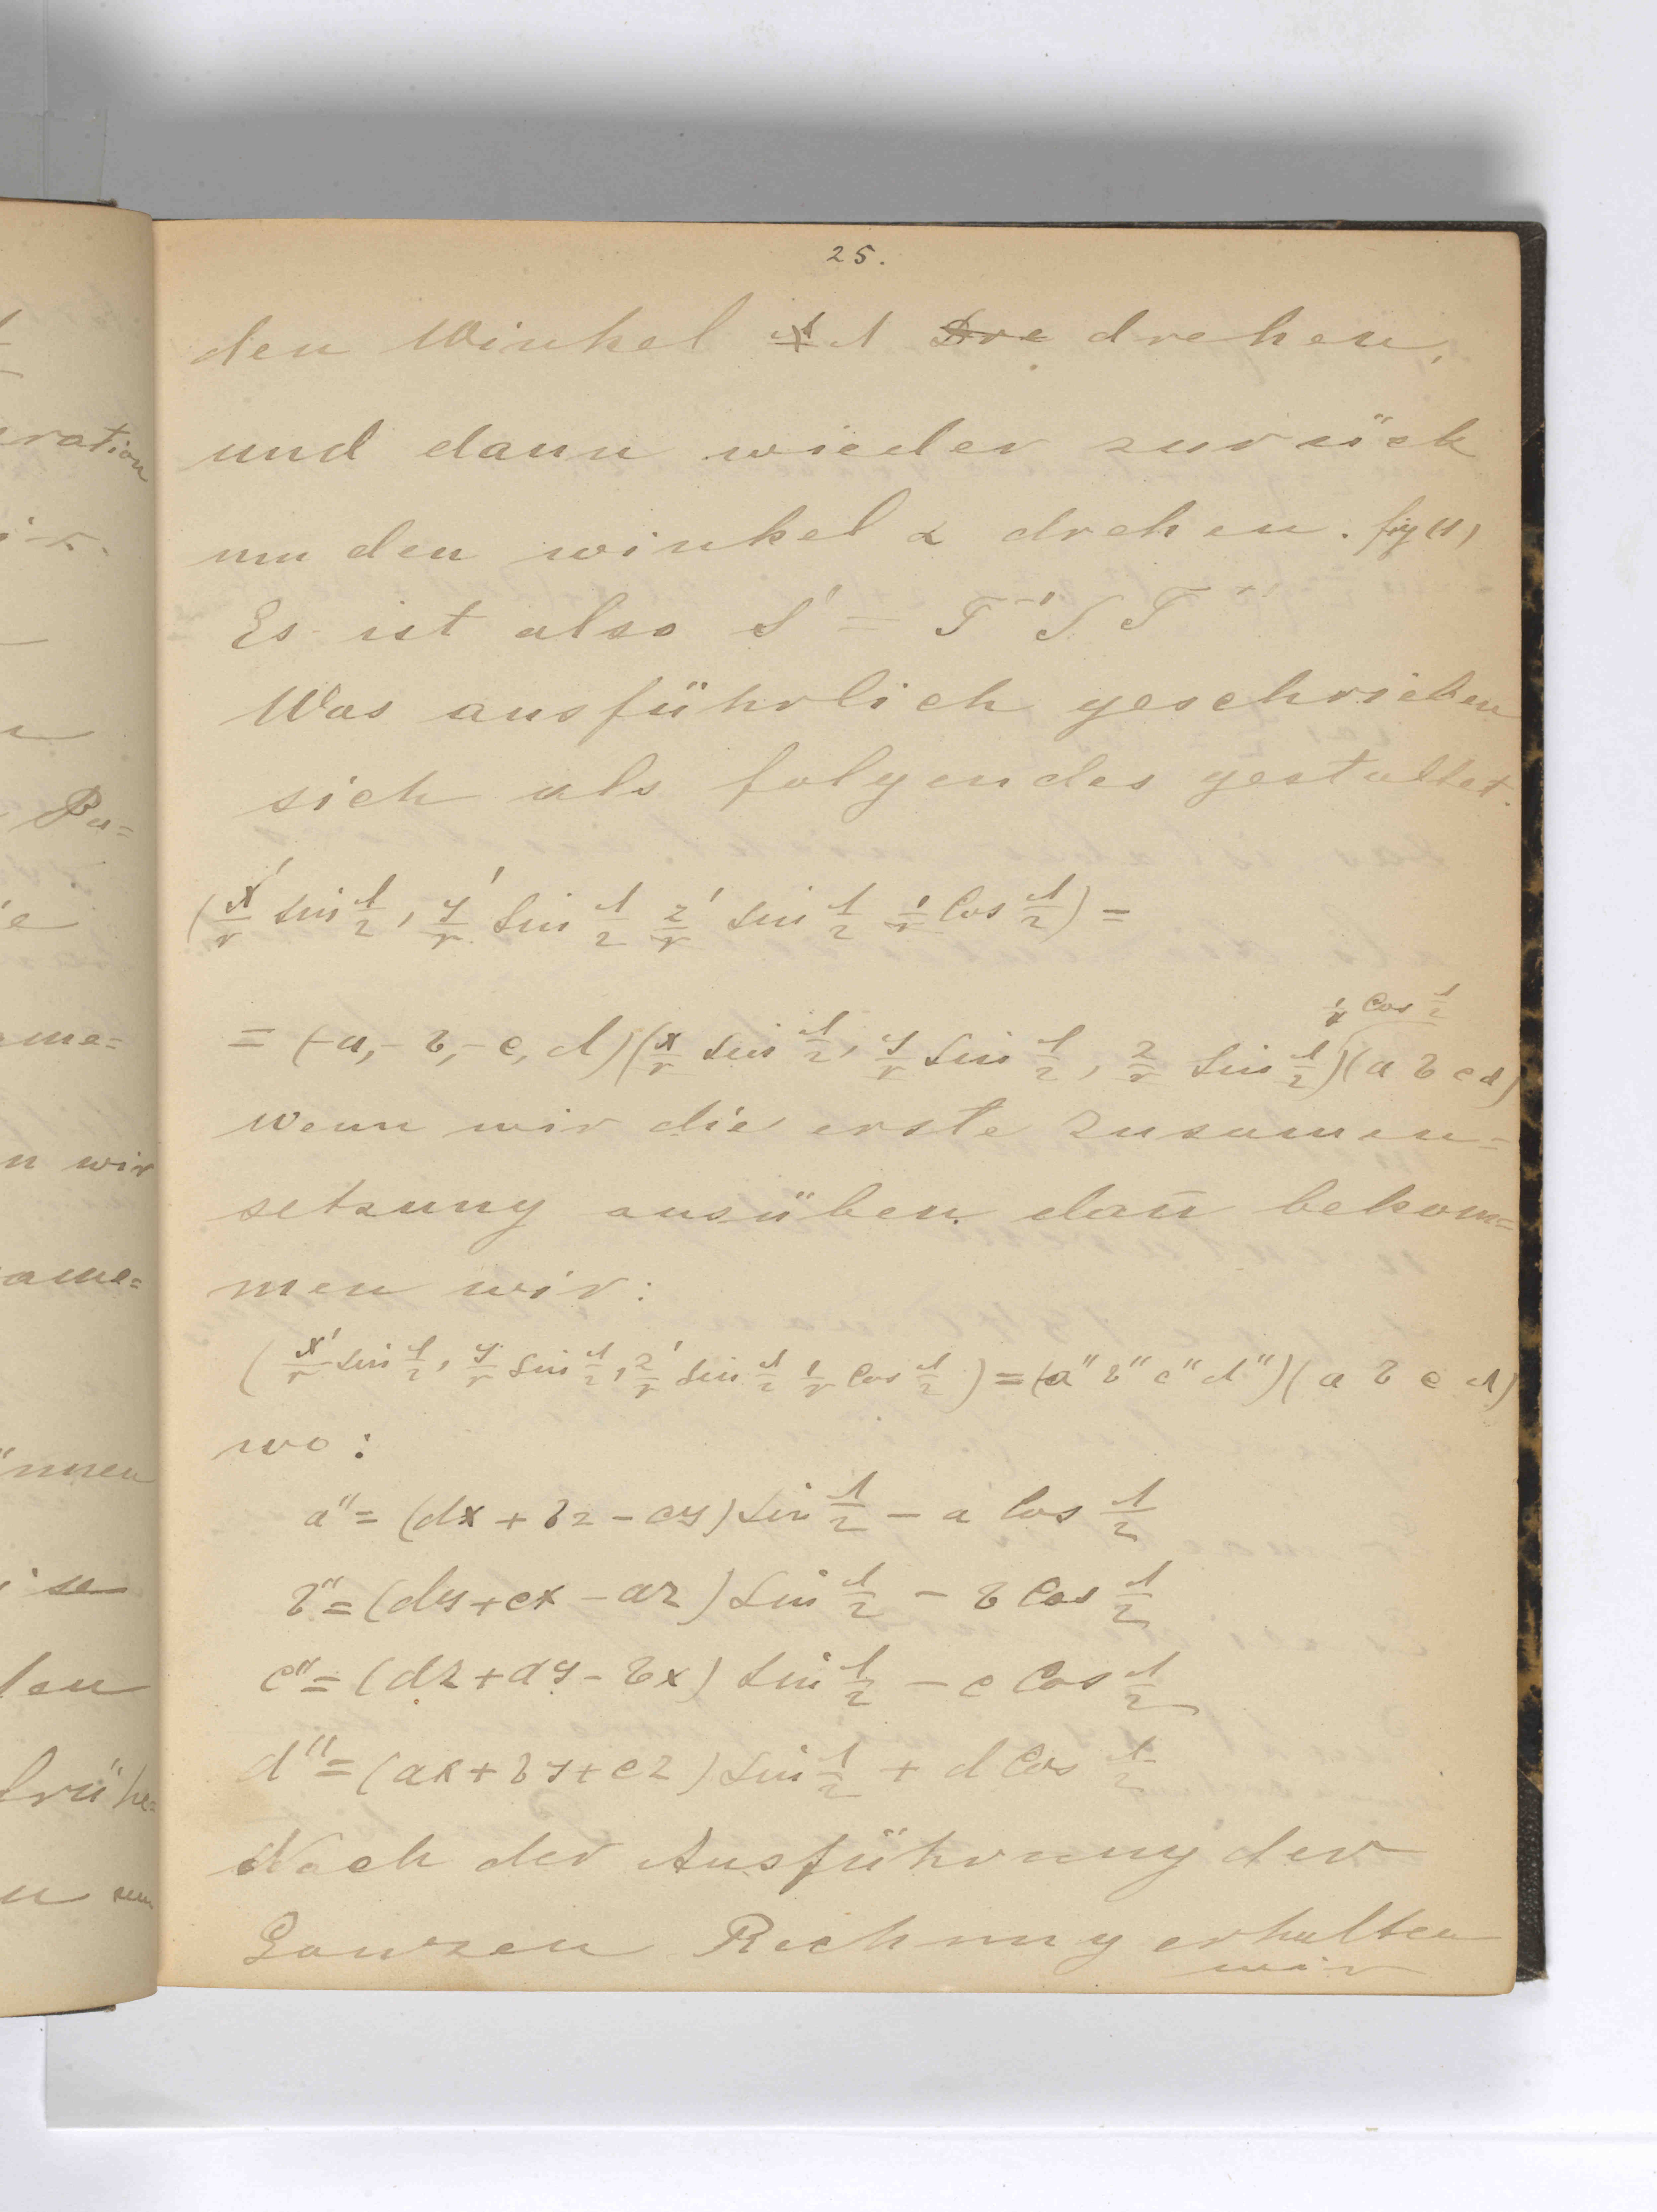 25.
den Winkel Λ drehen,
und dann wieder zurück
um den winkel α drehen. fig (1)
Es ist also S' = T⁻¹ S T
Was ausführlich geschrieben
sich als folgendes gestaltet.
(x'/r Sin Λ/2, y'/r Sin Λ/2 z'/r Sin Λ/2 1/r Cos Λ/2) =
= (-a, -b, -c, d)(x/r Sin Λ/2, y/r Sin Λ/2, z/r Sin Λ/2 1/r Cos Λ/2)(a b c d)
wenn wir die erste Zusamen=
setzung ausüben dañ bekom=
men wir:
(x'/r Sin Λ/2, y'/r Sin Λ/2, z'/r Sin Λ/2 1/r Cos Λ/2) = (a" b" c" d")(a b c d)
wo:
a" = (dx + bz - cy) Sin Λ/2 - a Cos Λ/2
b" = (dy + cx - az) Sin Λ/2 - b Cos Λ/2
c" = (dz + ay - bx) Sin Λ/2 - c Cos Λ/2
d" = (ax + by + cz) Sin Λ/2 + d Cos Λ/2
Nach der Ausführung der
Ganzen Rechnung erhalten
wir
ration
me=
n wir
ame=